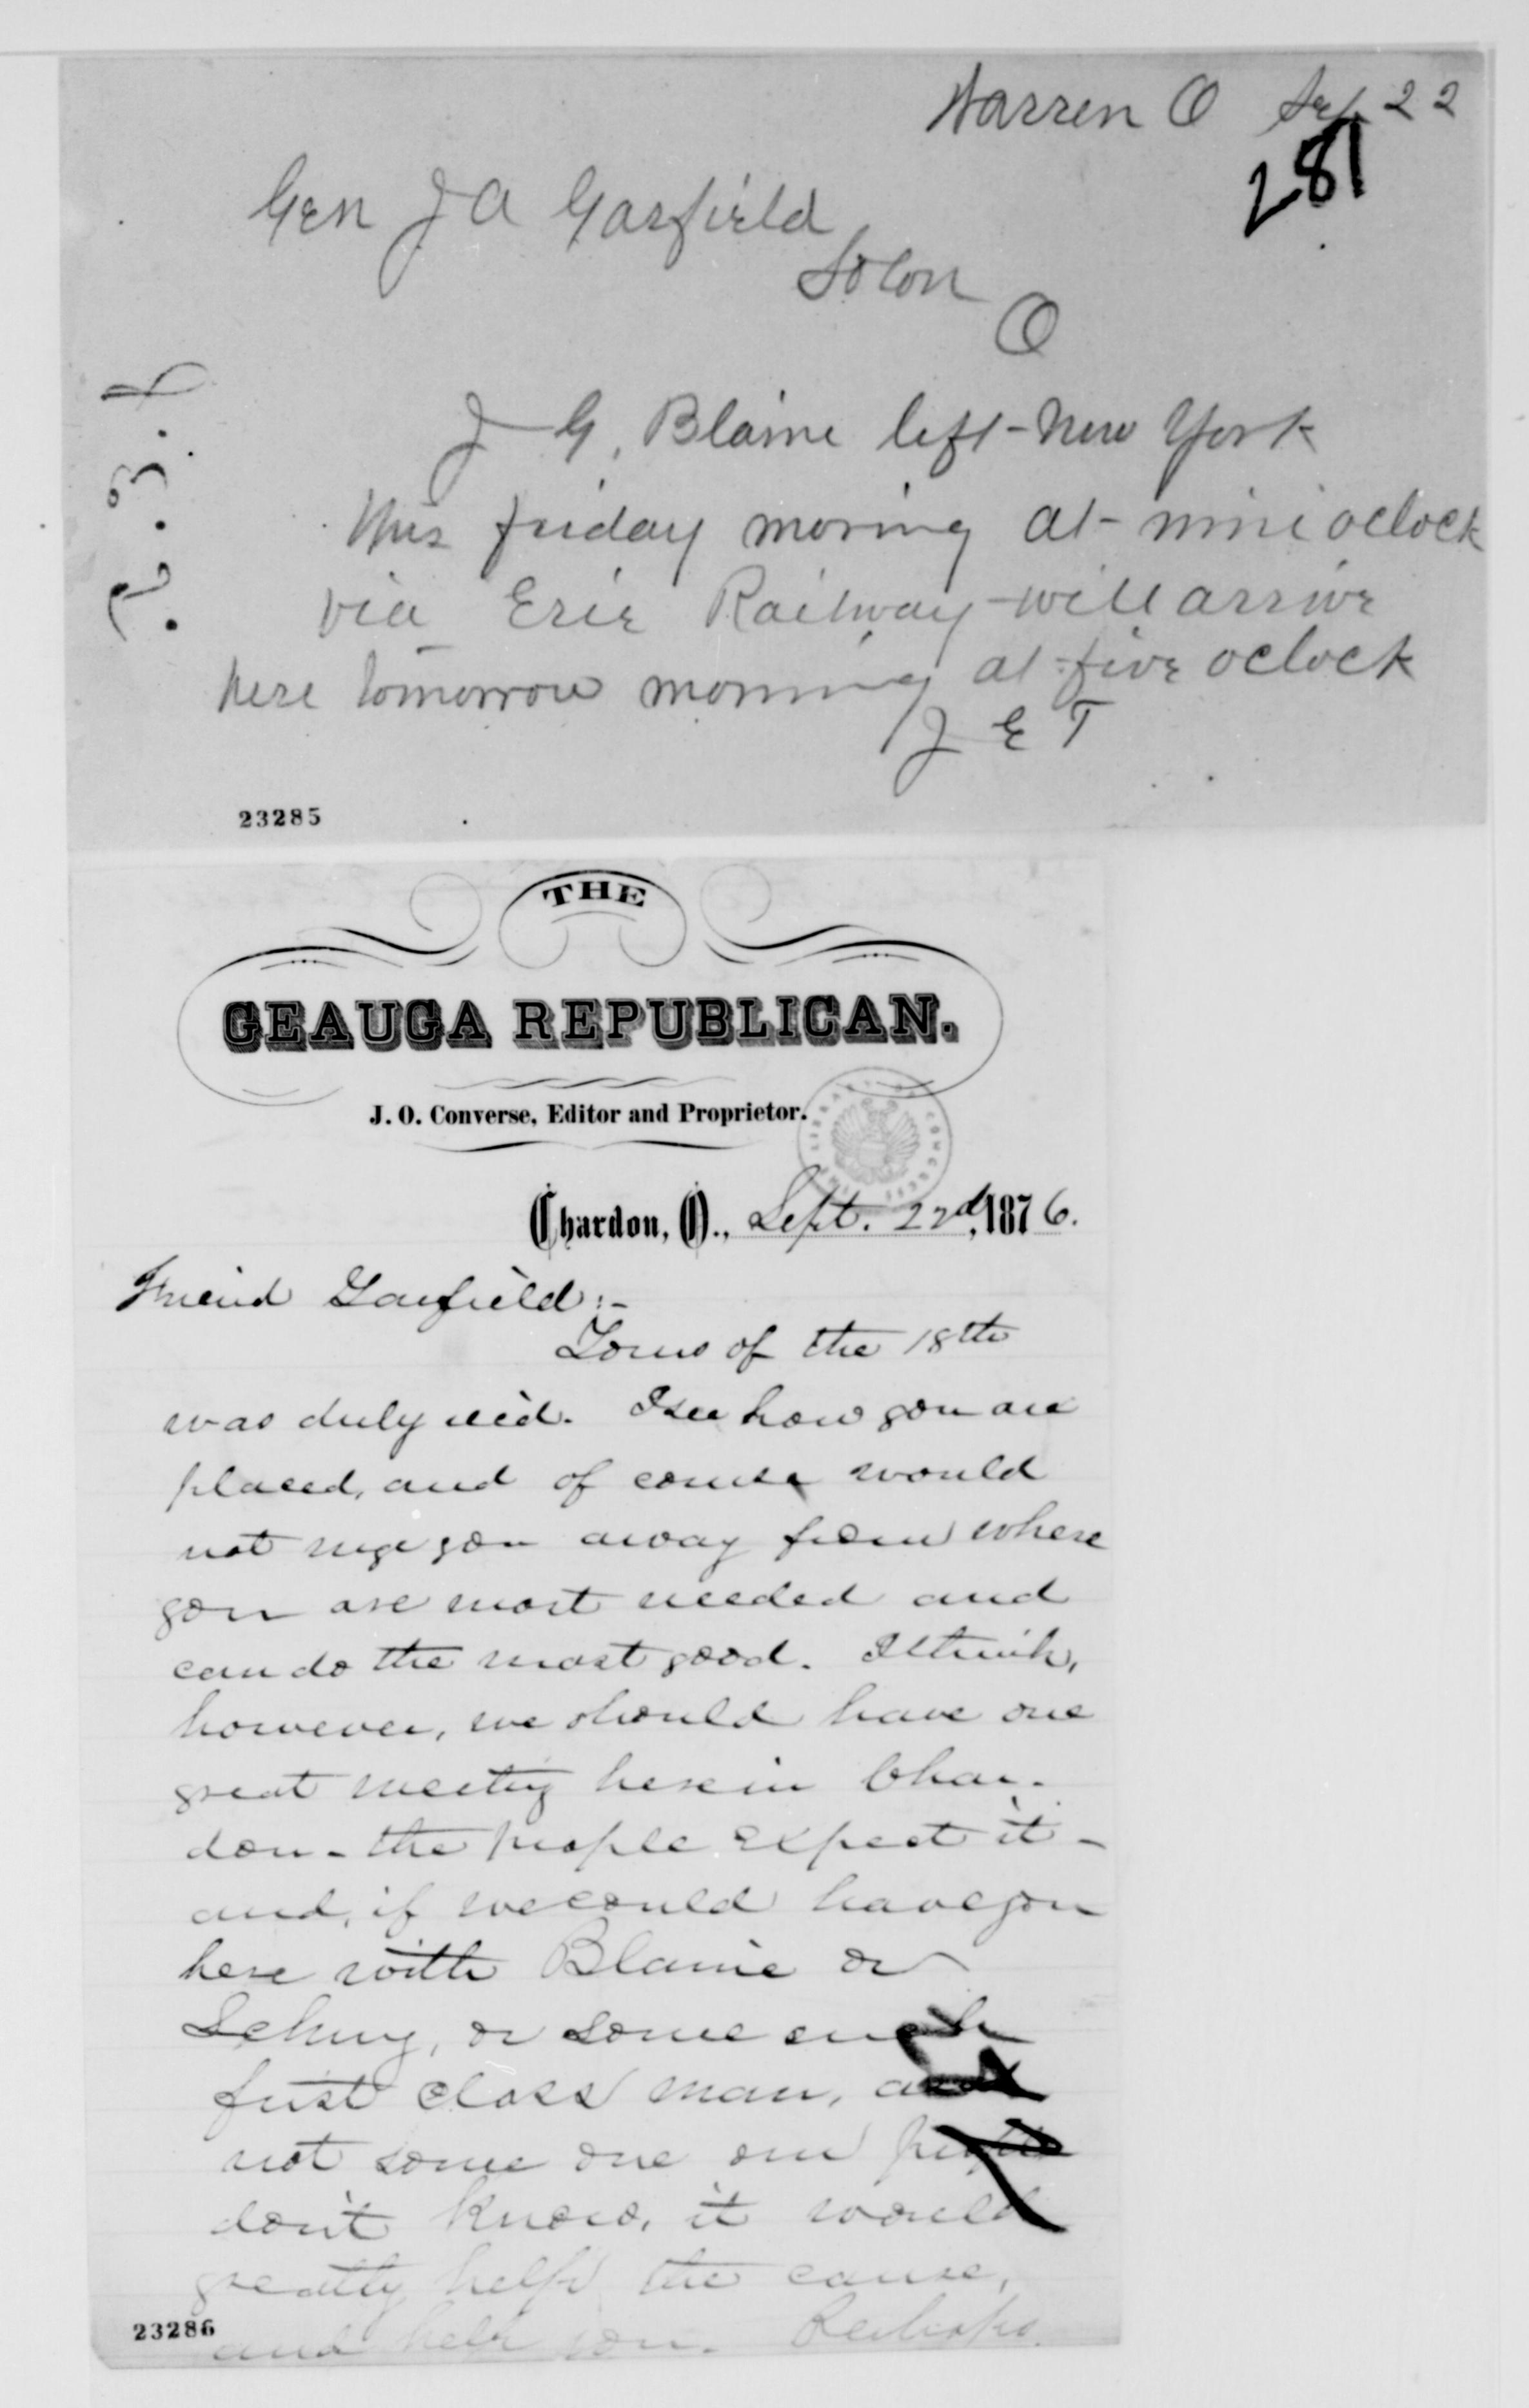 Warren O Sep 22
281
Gen J A Garfield
Solon
O
J G. Blaine left - New York
this friday morning at - nine oclock
via Erie Railway - will arrive
here tomorrow morning at - five oclock
J E T
23285
THE
GEAUGA REPUBLICAN.
J. O. Converse, Editor and Proprietor.
LIBRARY OF CONGRESS
Chardon, O., Sept. 22d, 1876.
Friend Garfield:-
Yours of the 18th
was duly rec'd. I see how you are
placed, and of course would
not urge you away from where
you are most needed and
can do the most good. I think,
however, we should have one
great meeting here in Char-
don - the people expect it -
and, if we could have you
here with Blaine or
Schurz, or some such
first class man, and
not some one our people
don't know, it would
greatly help the cause,
and help you. Perhaps
23286